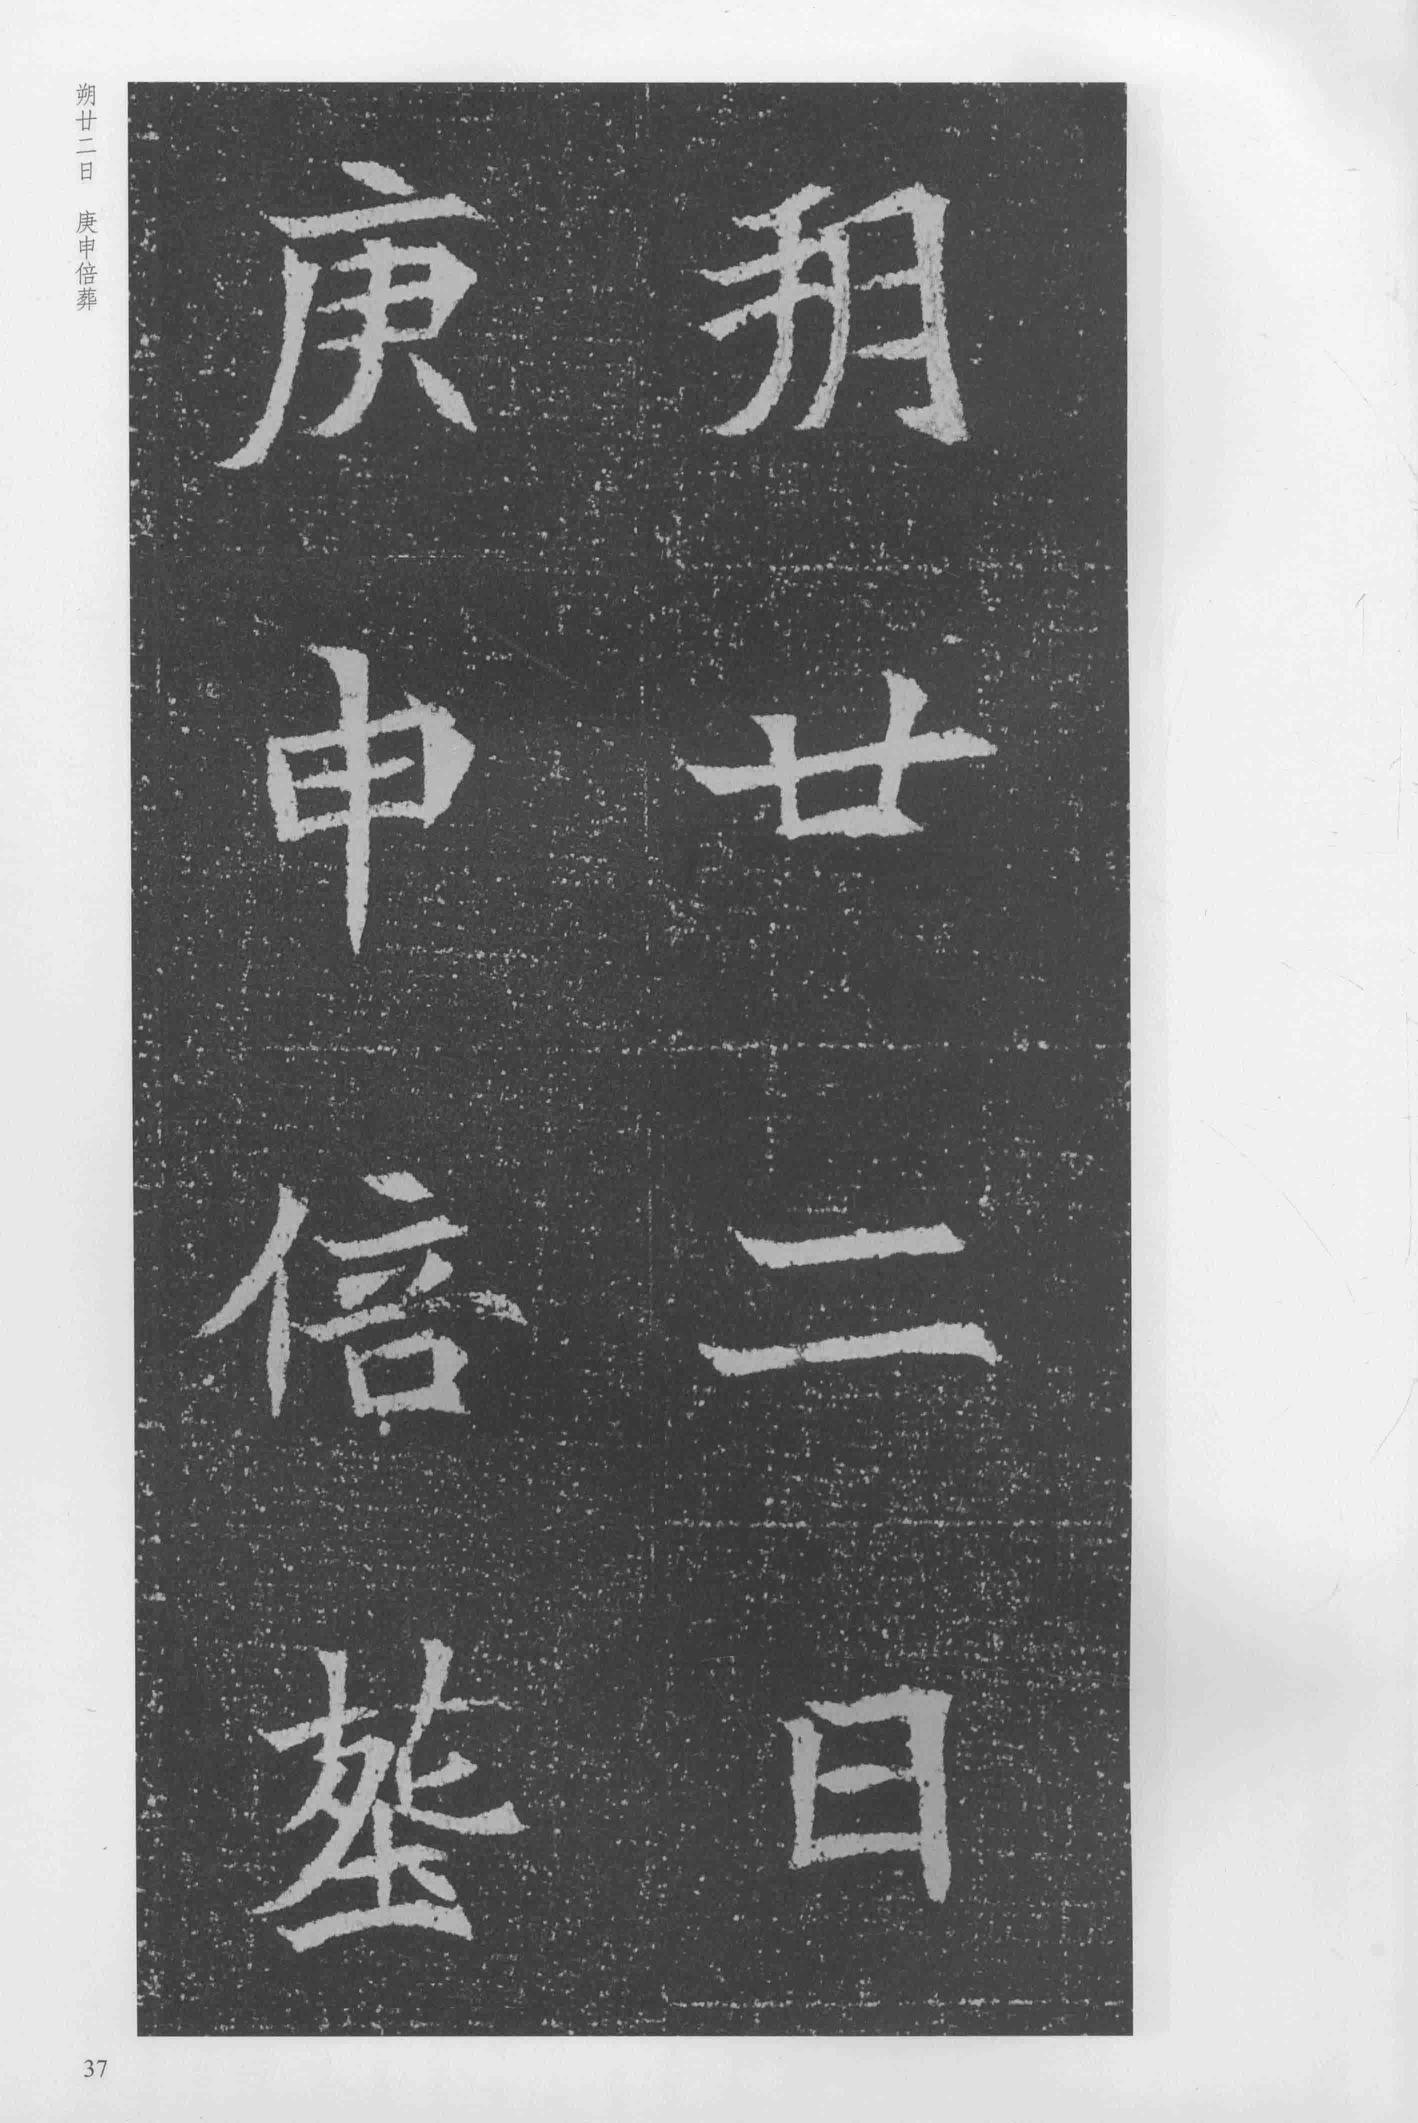 朔廿二日
庚申倍葬
朔廿二日　庚申倍葬
37